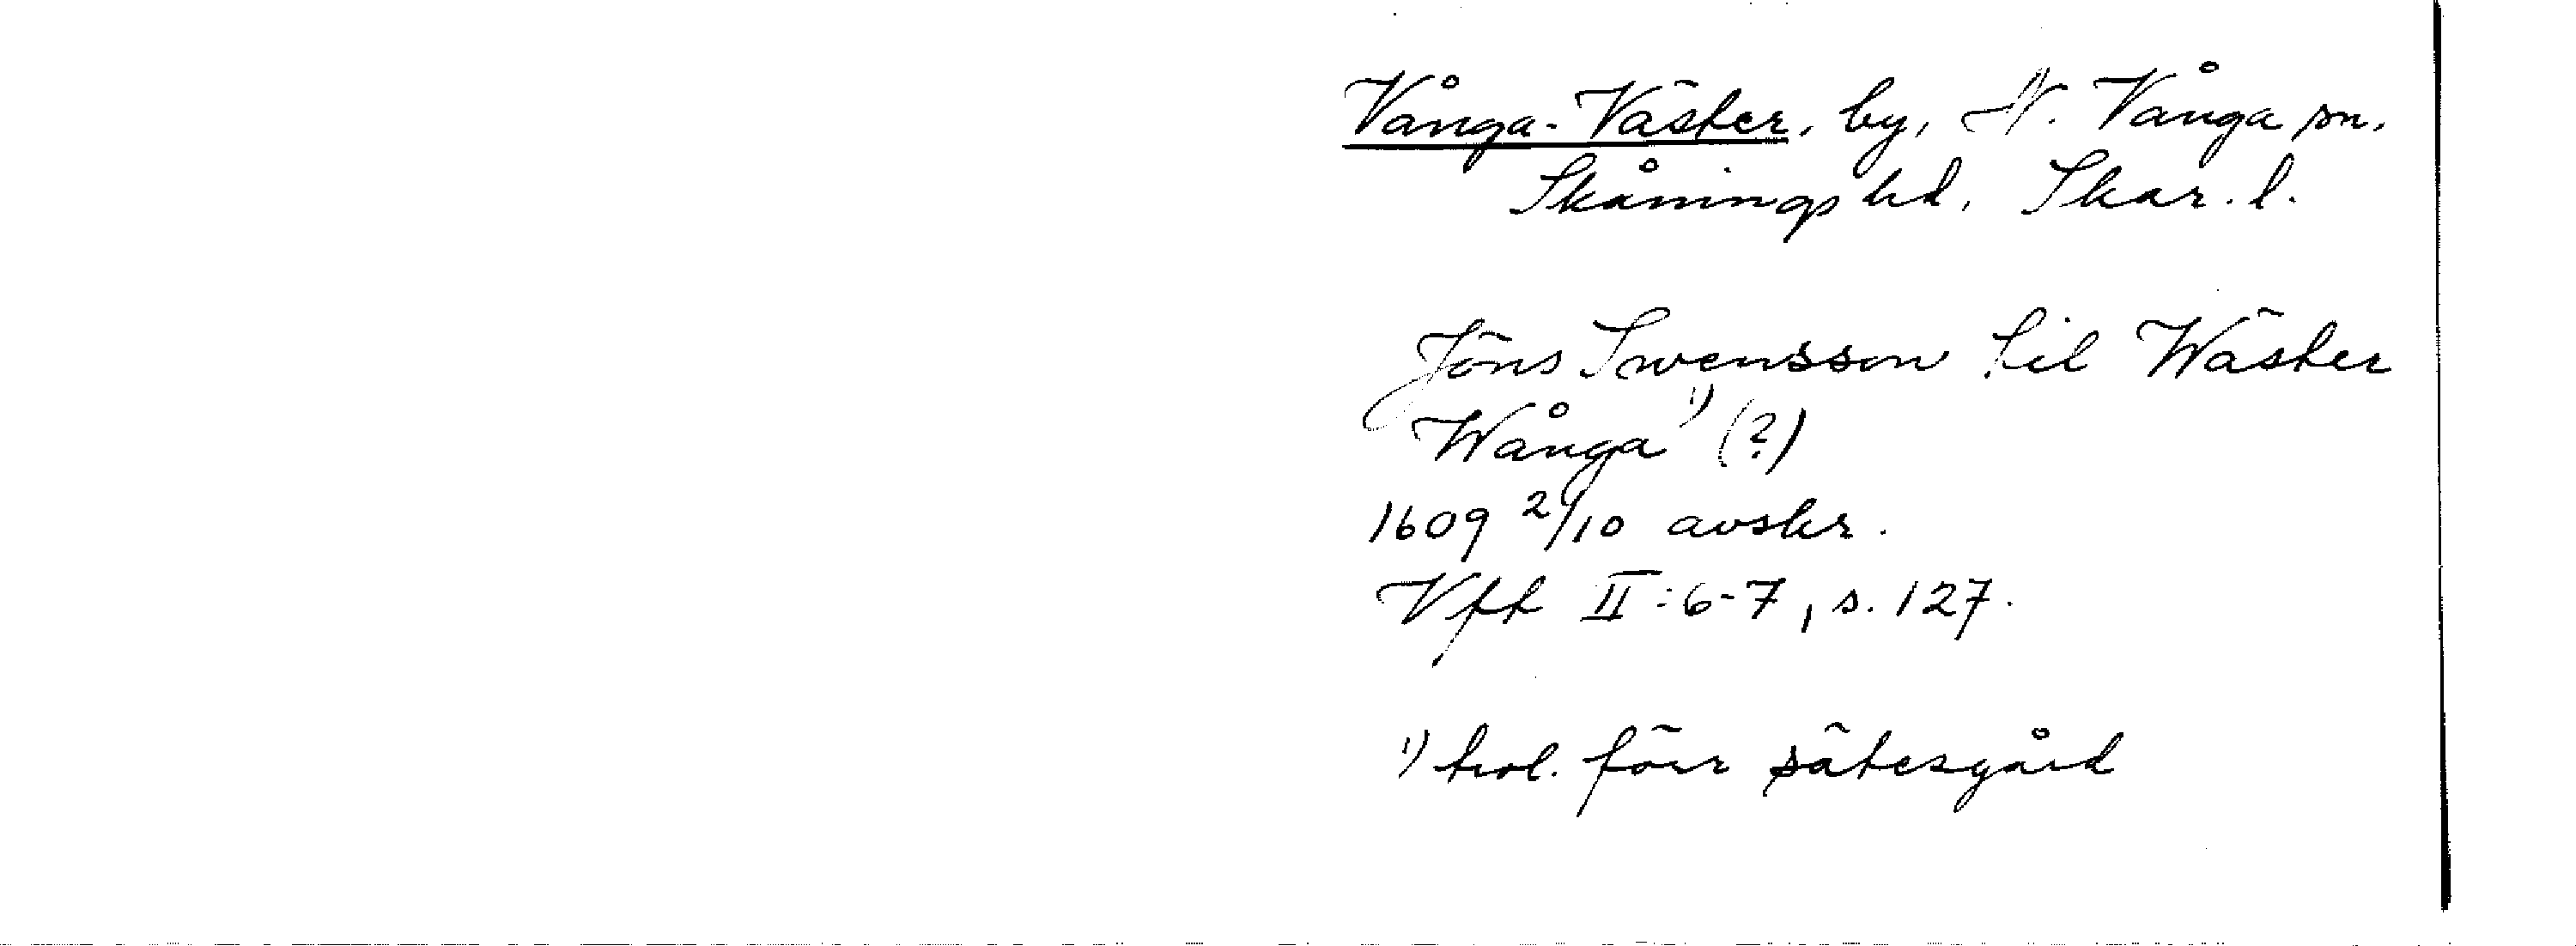 Vånga-Väster, by, N. Vånga sn.
Skånings hd, Skar. l.
Jöns Swensson til Wäster
Wånga ¹⁾ (?)
1609 2/10 avskr.
Vft II:6-7, s. 127.
¹⁾ trol. förr sätesgård